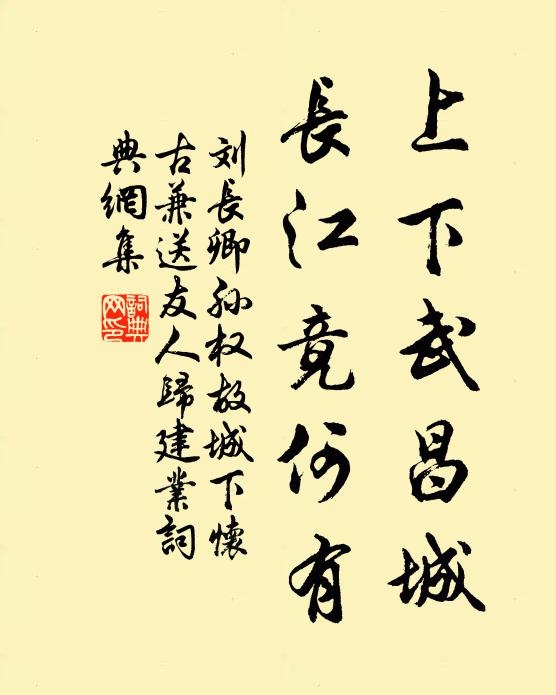 上下武昌城
長江竟何有
刘長卿孙权故城下懷
古兼送友人歸建業詞
典網集
詞典网印